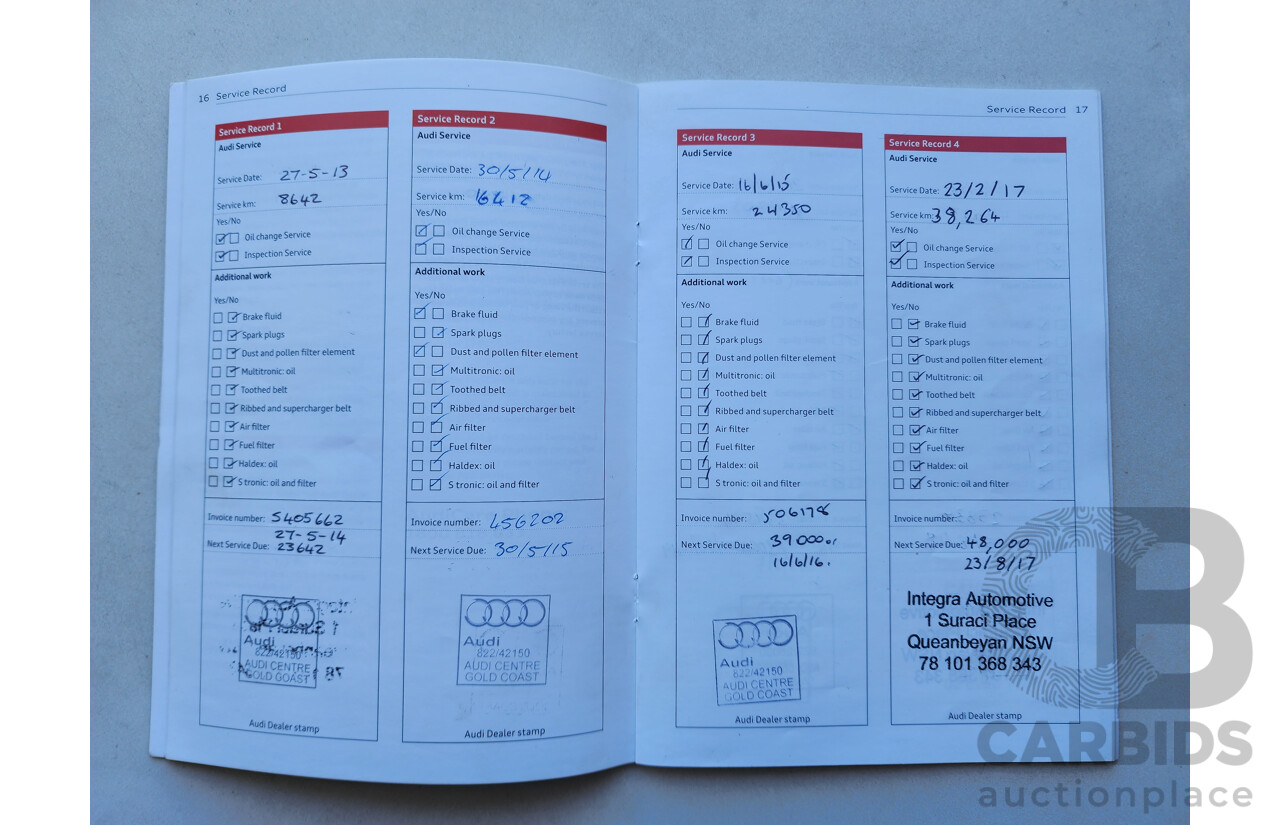 16 Service Record
Service Record 1
Audi Service
Service Date: 27-5-13
Service km: 8642
Yes/No
Oil change Service
Inspection Service
Additional work
Yes/No
Brake fluid
Spark plugs
Dust and pollen filter element
Multitronic: oil
Toothed belt
Ribbed and supercharger belt
Air filter
Fuel filter
Haldex: oil
S tronic: oil and filter
Invoice number: 5405662
27-5-14
Next Service Due: 23642
Audi
822/42150
AUDI CENTRE
GOLD COAST
Audi Dealer stamp
Service Record 2
Audi Service
Service Date: 30/5/14
Service km: 16412
Yes/No
Oil change Service
Inspection Service
Additional work
Yes/No
Brake fluid
Spark plugs
Dust and pollen filter element
Multitronic: oil
Toothed belt
Ribbed and supercharger belt
Air filter
Fuel filter
Haldex: oil
S tronic: oil and filter
Invoice number: 456202
Next Service Due: 30/5/15
Audi
822/42150
AUDI CENTRE
GOLD COAST
Audi Dealer stamp
Service Record 17
Service Record 3
Audi Service
Service Date: 16/6/15
Service km: 24350
Yes/No
Oil change Service
Inspection Service
Additional work
Yes/No
Brake fluid
Spark plugs
Dust and pollen filter element
Multitronic: oil
Toothed belt
Ribbed and supercharger belt
Air filter
Fuel filter
Haldex: oil
S tronic: oil and filter
Invoice number: 506178
Next Service Due: 39000
16/6/16.
Audi
822/42150
AUDI CENTRE
GOLD COAST
Audi Dealer stamp
Service Record 4
Audi Service
Service Date: 23/2/17
Service km: 38,264
Yes/No
Oil change Service
Inspection Service
Additional work
Yes/No
Brake fluid
Spark plugs
Dust and pollen filter element
Multitronic: oil
Toothed belt
Ribbed and supercharger belt
Air filter
Fuel filter
Haldex: oil
S tronic: oil and filter
Invoice number:
Next Service Due: 48,000
23/8/17
Integra Automotive
1 Suraci Place
Queanbeyan NSW
78 101 368 343
Audi Dealer stamp
CARBIDS
auctionplace